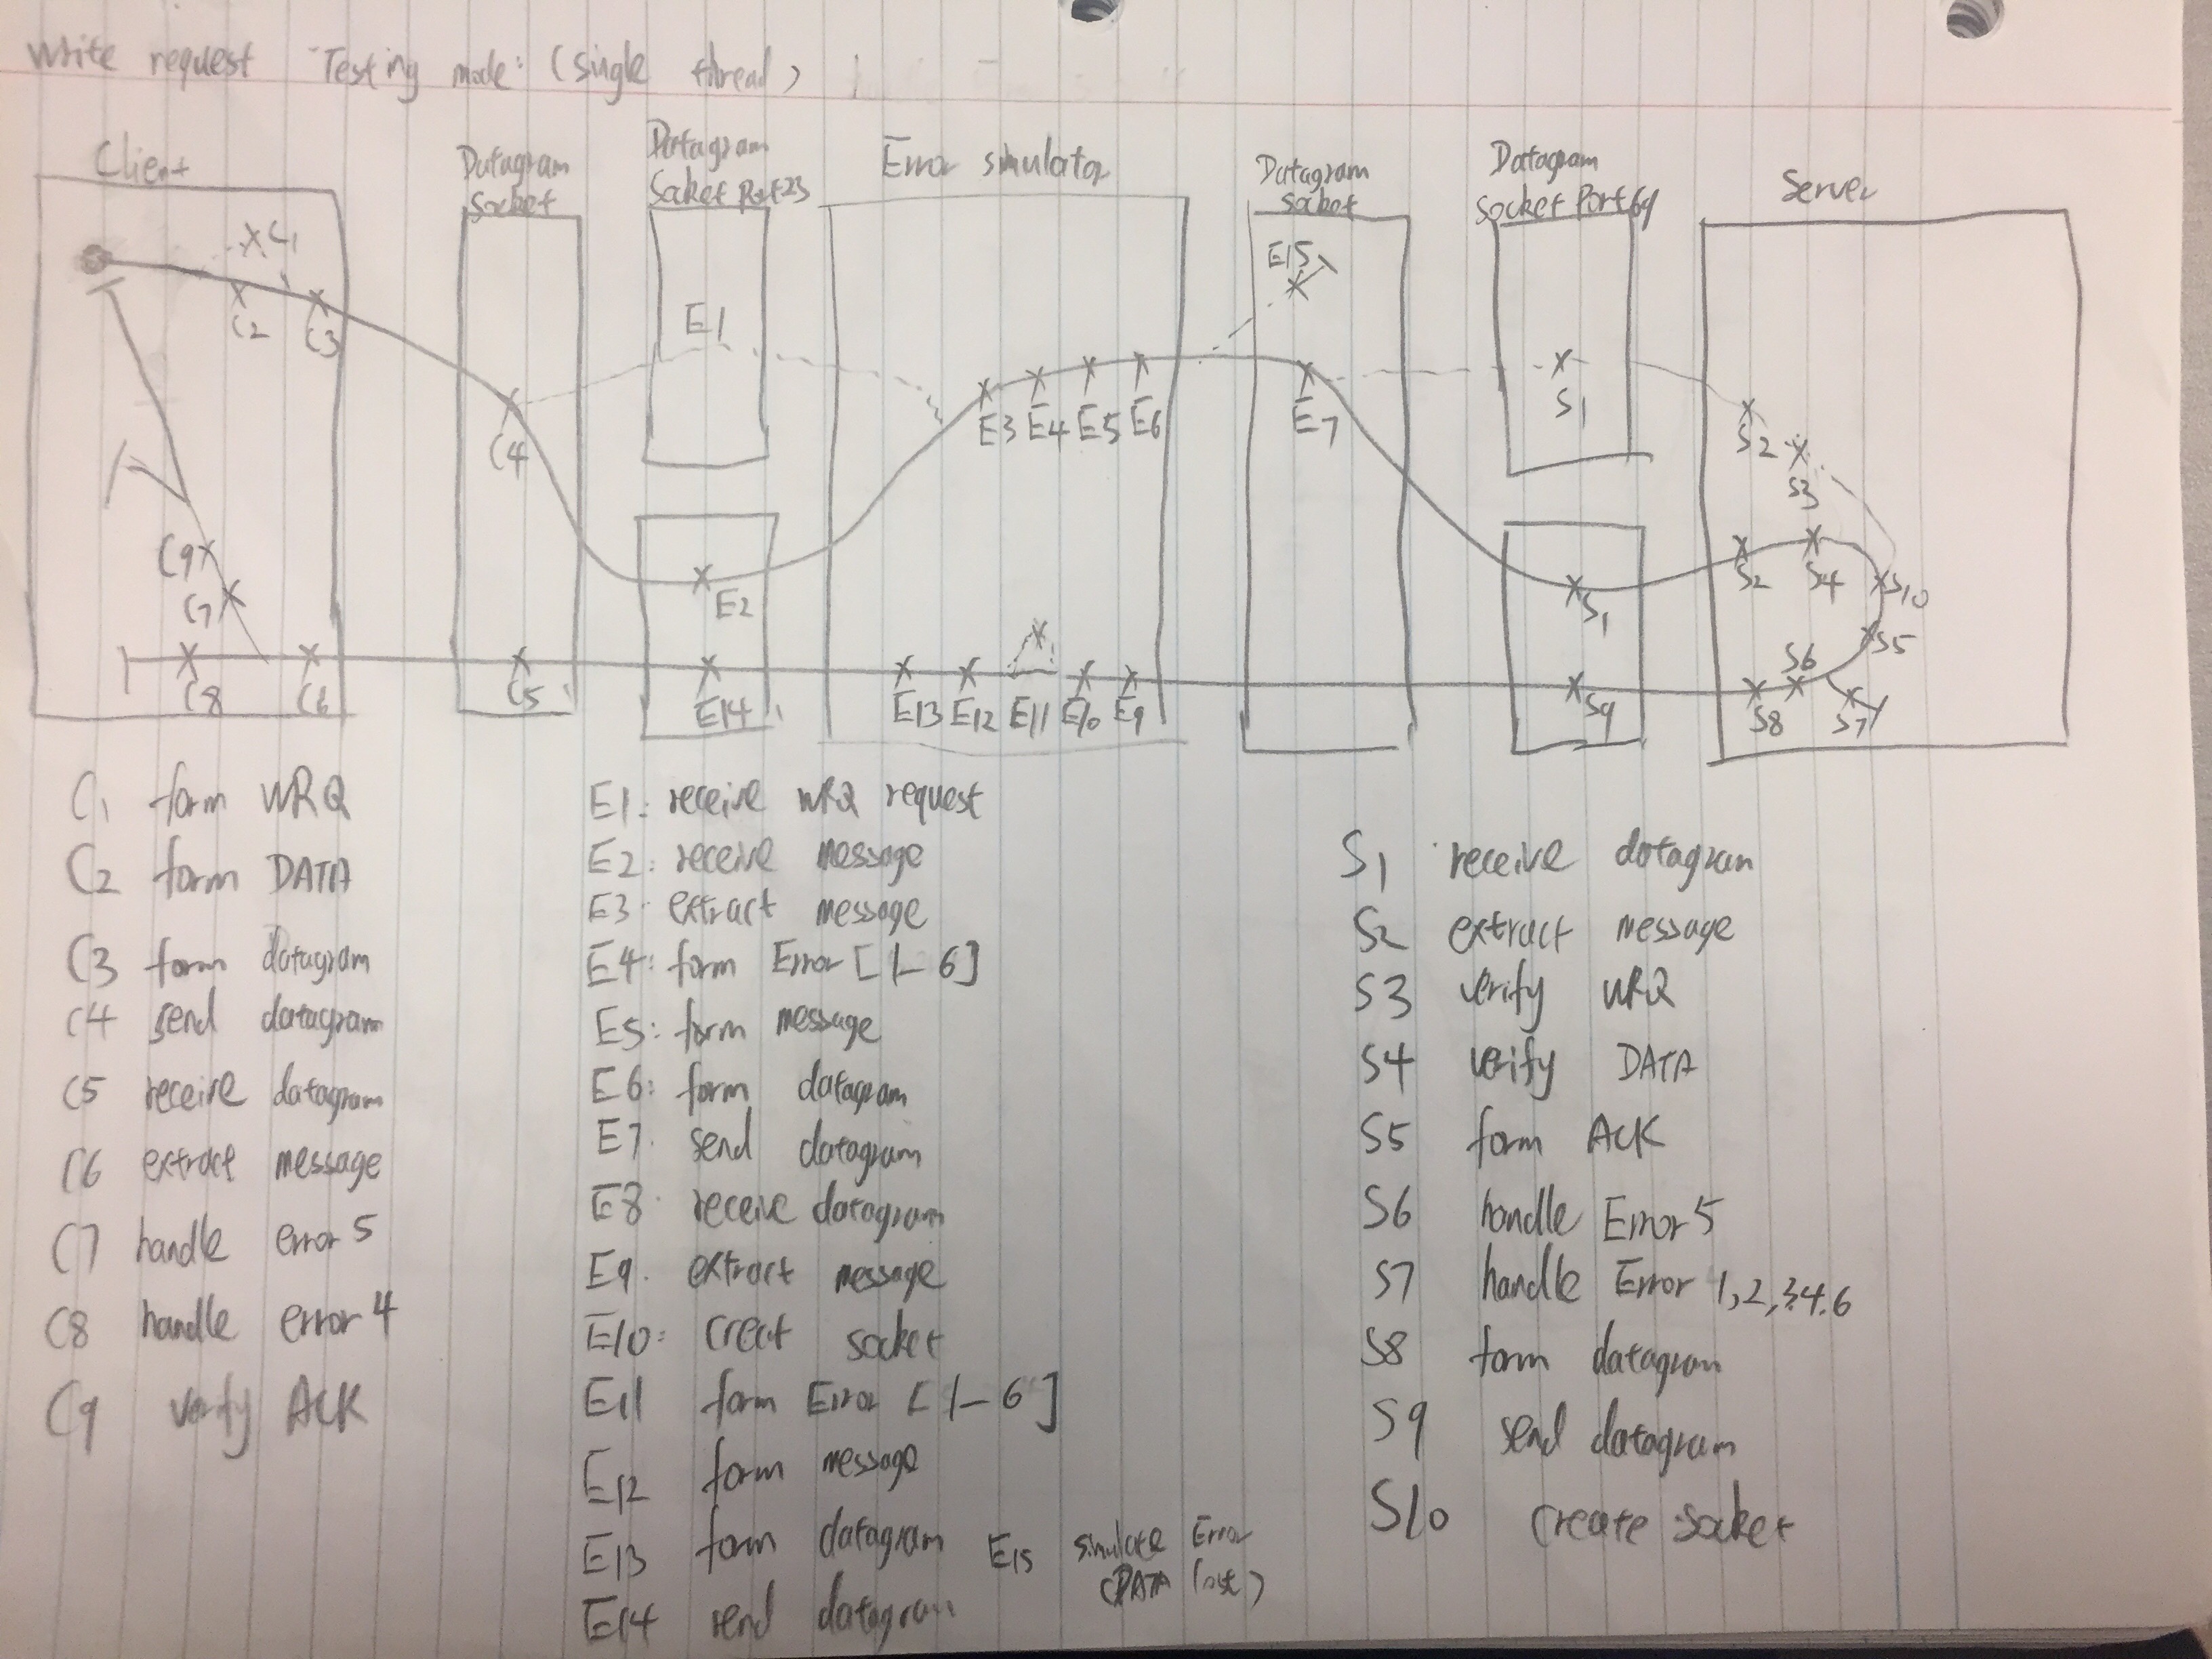 Write request Testing mode: (single thread)
Client
Datagram
Socket
Datagram
Socket Port23
Error simulator
Datagram
socket
Datagram
Socket Port 69
Server
C1
C2
C3
C4
E1
E2
E3 E4 E5 E6
E15
E7
S1
S2
S3
S2
S4
S10
S1
S5
S6
C9
C7
C8
C6
C5
E14
E13 E12 E11 E10 E9
S9
S8
S7
C1 form WRQ
C2 form DATA
C3 form datagram
C4 send datagram
C5 receive datagram
C6 extract message
C7 handle error 5
C8 handle error 4
C9 verify ACK
E1: receive WRQ request
E2: receive message
E3: extract message
E4: form Error [1-6]
E5: form message
E6: form datagram
E7. send datagram
E8. receive datagram
E9. extract message
E10: creat socket
E11 form Error [1-6]
E12 form message
E13 form datagram
E14 send datagram
E15 simulate Error
(DATA lost)
S1 receive datagram
S2 extract message
S3 verify WRQ
S4 verify DATA
S5 form ACK
S6 handle Error 5
S7 handle Error 1,2,3,4.6
S8 form datagram
S9 send datagram
S10 create socket